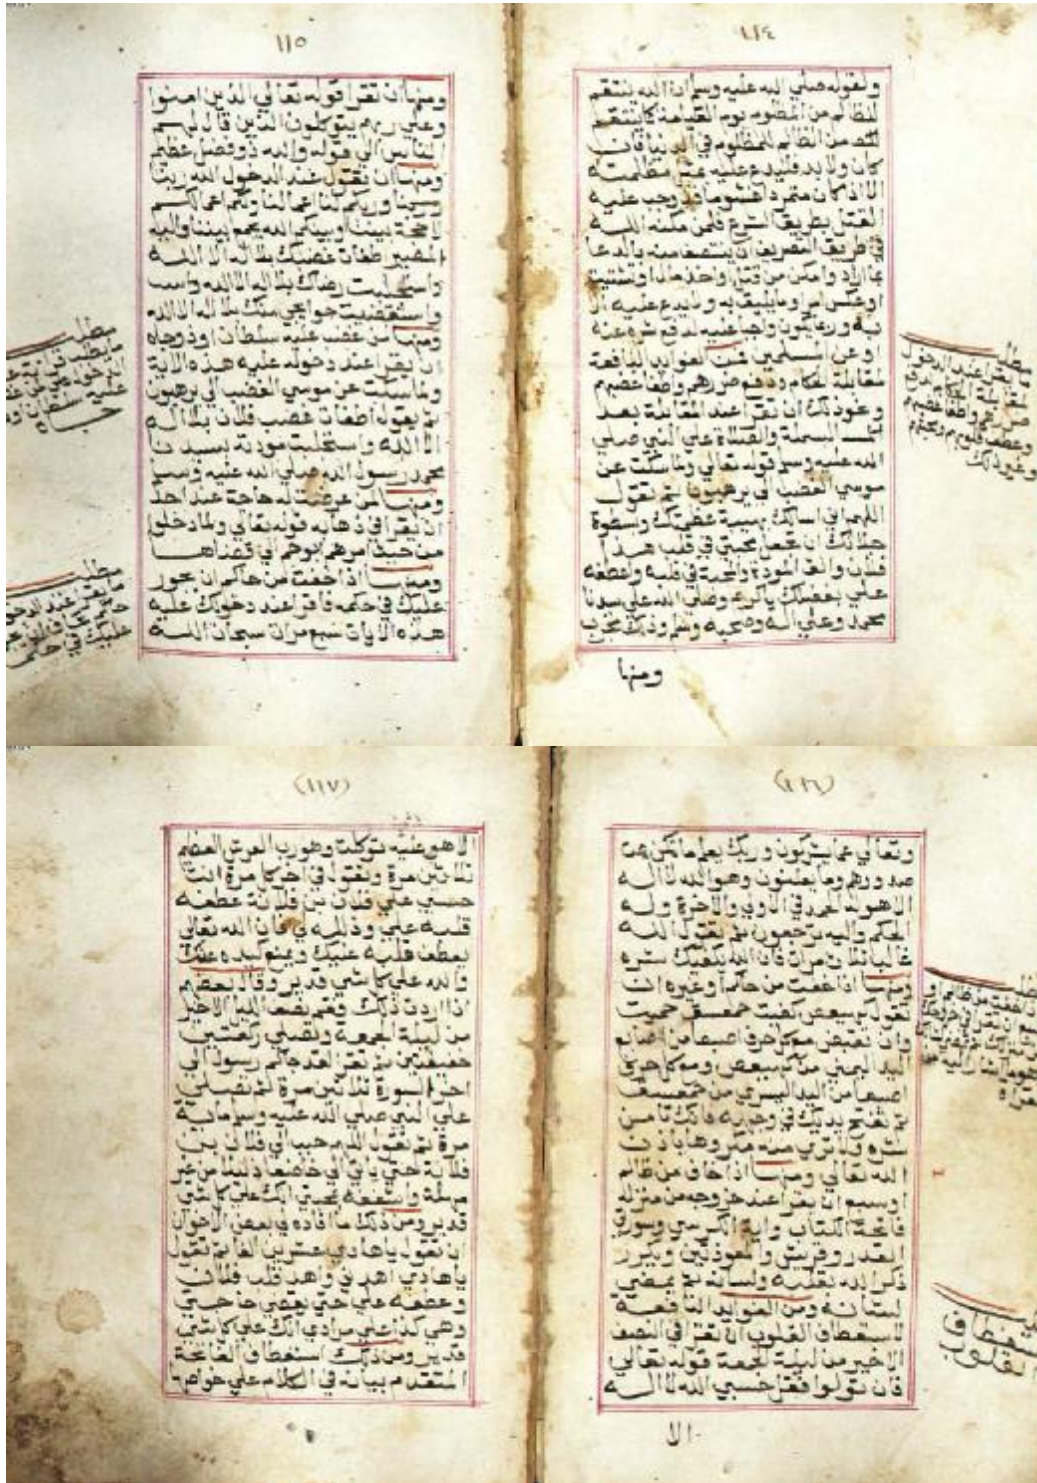 ١١٤
ولقوله صلي الله عليه وسلم ان الله ينتقم
للظالم من المظلوم يوم القيامة كما ينتقم
من الظالم للمظلوم في الدنيا فان
كان ولا بد فليدع عليه مظلمته
الا اذ كان متمردا غشوما قد وجب عليه
القتل بطريق الشرع فلمن مكنه الله
في طريق التصريف ان ينتصف منه بالدعا
بما اراد وامكن من قتل واخذ مال وتشتيت
او عكس امر وما يليق به ولا يدع عليه الا
به وربما يكون واجبا عليه لدفع شره عنه
او عن المسلمين فمن الفوايد النافعة
لمقابلة الحكام ودفع ضررهم واطفا غضبهم
ونحو ذلك ان تقرا عند المقابلة بعد
البسملة والصلاة علي النبي صلي
الله عليه وسلم قوله تعالي ولما سكت عن
موسي الغضب الي يرهبون ثم تقول
اللهم اني اسالك بهيبة عظمتك وسطوة
جلالك ان تجعل محبتي في قلب هذا
فلان والق المودة والمحبة في قلبه وعطفه
علي بفضلك ياكريم وصلي الله علي سيدنا
محمد وعلي اله وصحبه وسلم وذلك مجرب
ومنها
مطلب
ما يقرا عند الدخول
لمقابلة الحكام ودفع
ضررهم واطفا غضبهم
وعطف قلوبهم
ونحو ذلك
١١٥
ومنها ان تقرا قوله تعالي الذين امنوا
وعلي ربهم يتوكلون الذين قال لهم
الناس الي قوله والله ذو فضل عظيم
ومنها ان تقول عند الدخول الله ربنا
وربكم لنا اعمالنا ولكم اعمالكم
لا حجة بيننا وبينكم الله يجمع بيننا واليه
المصير طفات غضبك بلا اله الا الله
واستجلبت رضاك بلا اله الا الله
واستقضيت حوايجي منك بلا اله الا الله
ومنها من غضب عليه سلطان او ذو جاه
ان يقرا عند دخوله عليه هذه الاية
ولما سكت عن موسي الغضب الي يرهبون
ثم يقول اطفات غضب فلان بلا اله
الا الله واستجلبت مودته بسيدنا
محمد رسول الله صلي الله عليه وسلم
ومنها لمن عرضت له حاجة عند احد
ان يقرا في ذهابه قوله تعالي ولما دخلوا
من حيث امرهم ابوهم الي قضاها
ومنها اذا خفت من حاكم ان يجور
عليك في حكمه فاقرا عند دخولك عليه
هذه الايات سبع مرات سبحان الله
مطلب
الدخول علي من غضب
عليه سلطان او ذو
جاه
مطلب
ما يقرا عند الدخول
عليك في حكمه
(١١٦)
وتعالي عما يشركون وربك يعلم ما تكن
صدورهم وما يعلنون وهو الله لا اله
الا هو له الحمد في الاولي والاخرة وله
الحكم واليه ترجعون ثم تقول الله
غالب ثلاث مرات فان الله يكفيك شره
ومنها اذا خفت من حاكم او غيره ان
تقول كهيعص كفيت حمعسق حميت
وان تقبض مع كل حرف اصبعا من اصابع
اليد اليمني من كهيعص ومع كل حرف
اصبعا من اليد اليسري من حمعسق
ثم تفتح يديك في وجهه فانك تامن
شره ولا تري منه مكروها باذن
الله تعالي ومنها اذا خاف من ظالم
او سبع ان يقرا عند خروجه من منزله
فاتحة الكتاب واية الكرسي وسورة
القدر وقريش والمعوذتين ويكرر
ذكر الله بقلبه ولسانه ثم يمضي
لشانه ومن الفوايد النافعة
لاستعطاف القلوب ان تقرا في النصف
الاخير من ليلة الجمعة قوله تعالي
فان تولوا فقل حسبي الله لا اله
الا
اذا خفت من ظالم او
سبع
استعطاف
القلوب
(١١٧)
الا هو عليه توكلت وهو رب العرش العظيم
ثلاثين مرة وتقول في اخر كل مرة انت
حسبي علي فلان بن فلانة عطف
قلبه علي وذلله لي فان الله تعالي
يعطف قلبه عليك ويمنع كيده عنك
والله علي كل شي قدير وقال بعضهم
اذا اردت ذلك فقم نصف الليل الاخير
من ليلة الجمعة وتصلي ركعتين
خفيفتين ثم تقرا لقد جاكم رسول الي
اخر السورة ثلاثين مرة ثم تصلي
علي النبي صلي الله عليه وسلم ماية
مرة ثم تقول اللهم حبب الي فلان بن
فلانة حتي ياتي الي خاضعا ذليلا من غير
مهلة واشغفه بمحبتي انك علي كل شي
قدير ومن ذلك ما افاده لي بعض الاخوان
ان تقول ياهادي عشرين الفا ثم تقول
ياهادي اهدني واهد قلب فلان
وعطفه علي حتي يقضي حاجتي
وهي كذا علي مرادي انك علي كل شي
قدير ومن ذلك استعطاف الفاتحة
المتقدم بيانه في الكلام علي خواص